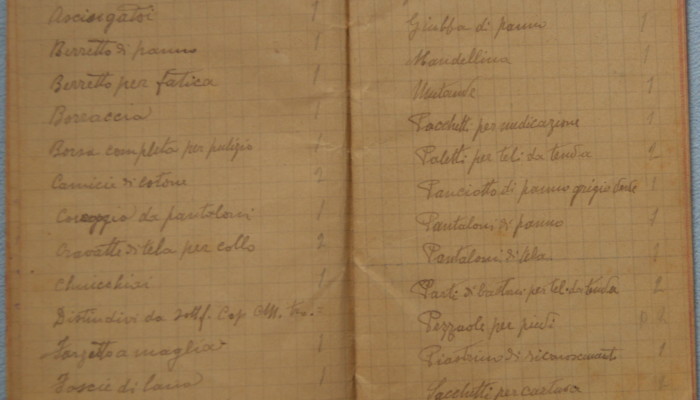 Asciugatoi 1
Berretto di panno 1
Berretto per fatica 1
Borraccia 1
Borsa completa per pulizia 1
Camicie di cotone 2
Coreggio da pantaloni 1
Cravatte di tela per collo 2
Chiucchiai 1
Distindivi da sottf. Cap
Farzetto a maglia 1
Fascie di lana 1
Giubba di panno 1
Mandellina 1
Mutande 1
Pacchetti per medicazione 1
Paletti per teli da tenda 2
Panciotto di panno grigio verde 1
Pantaloni di panno 1
Pantaloni di tela 1
Parti di bastoni per tel. da tenda 2
Pezzuole per piedi
Piastrino di riconoscimento 1
Sacchetti per cartucce 1